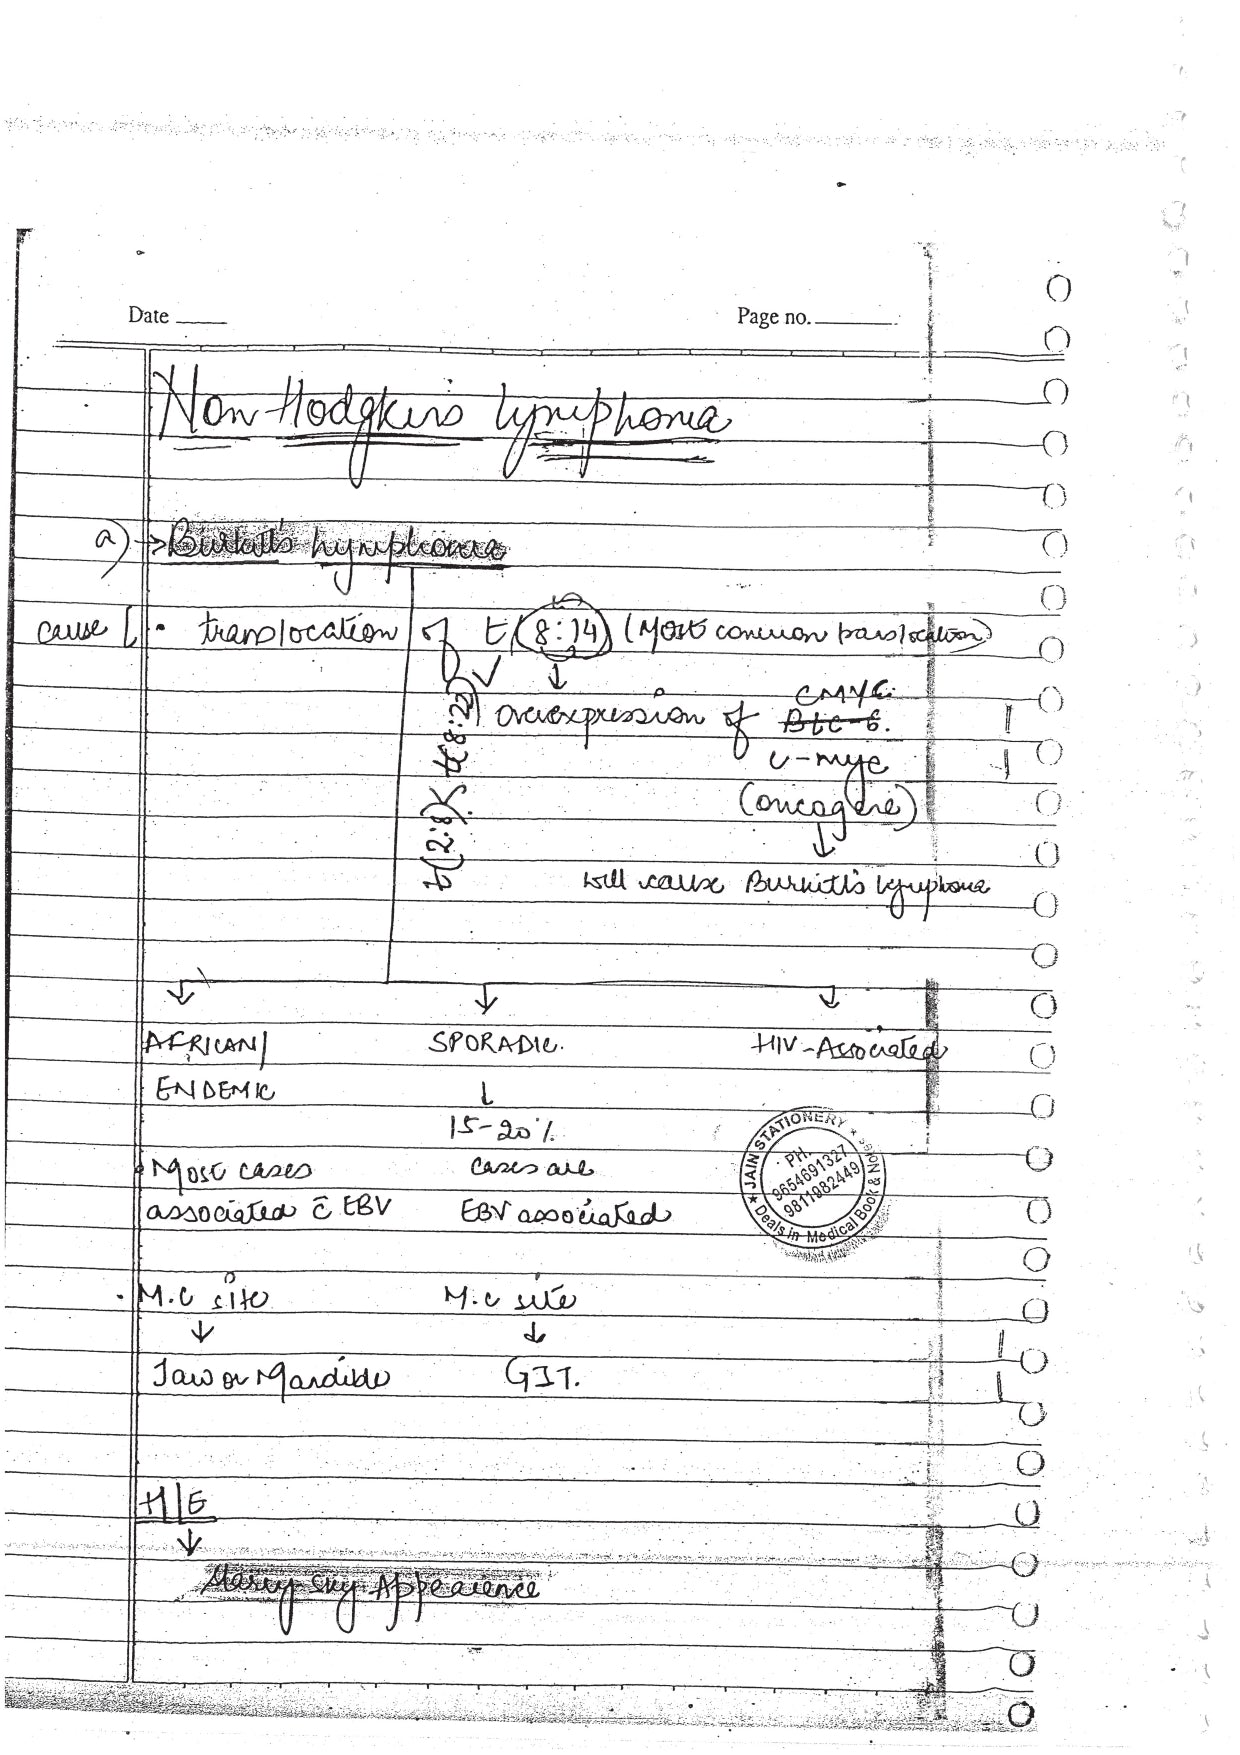 Date ____ Page no. ____
Non Hodgkin's lymphoma
a) → Burkitt's Lymphoma
cause [ • translocation of t(8:14) (Most common translocation)
t(2:8) t(8:22)
overexpression of CMYC.
Btc-6.
c-myc
(oncogene)
↓
will cause Burkitt's lymphoma
AFRICAN/ SPORADIC. HIV-Associated
ENDEMIC ↓
15-20%
• Most cases cases are
associated c̄ EBV EBV associated
• M.C site M.C site
↓ ↓
Jaw or Mandible GIT.
H/E
↓
Starry Sky Appearence
★ JAIN STATIONERY ★
PH.
9654691327
9811982449
Deals in Medical Book &